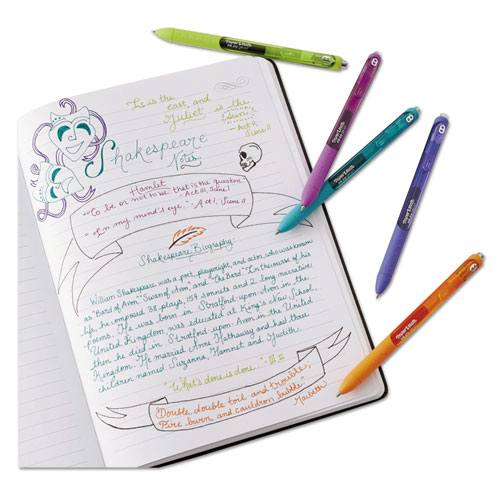 It is the
east, and
Juliet is the
Sun.
- Act 2,
Scene II
Shakespeare
Notes
Hamlet
"To be or not to be that is the question"
- Act III, Scene I
"In my mind's eye." - Act 1, Scene II
Shakespeare Biography
William Shakespeare was a poet, playwright, and actor, who was known
as "Bard of Avon," "Swan of Avon," and "the Bard." In the course of his
life, he composed 38 plays, 154 sonnets and 2 long narrative
poems. He was born in Stratford-upon-Avon in the
United Kingdom, was educated at King's New School,
then he died in Stratford-upon-Avon in the United
Kingdom. He married Anne Hathaway and had three
children named Suzanna, Hamnet and Judith.
"What's done is done." - III. II
"Double, double toil and trouble;
Fire burn, and cauldron bubble"
Macbeth
Paper Mate
Paper Mate
Paper Mate
Paper Mate
Paper Mate